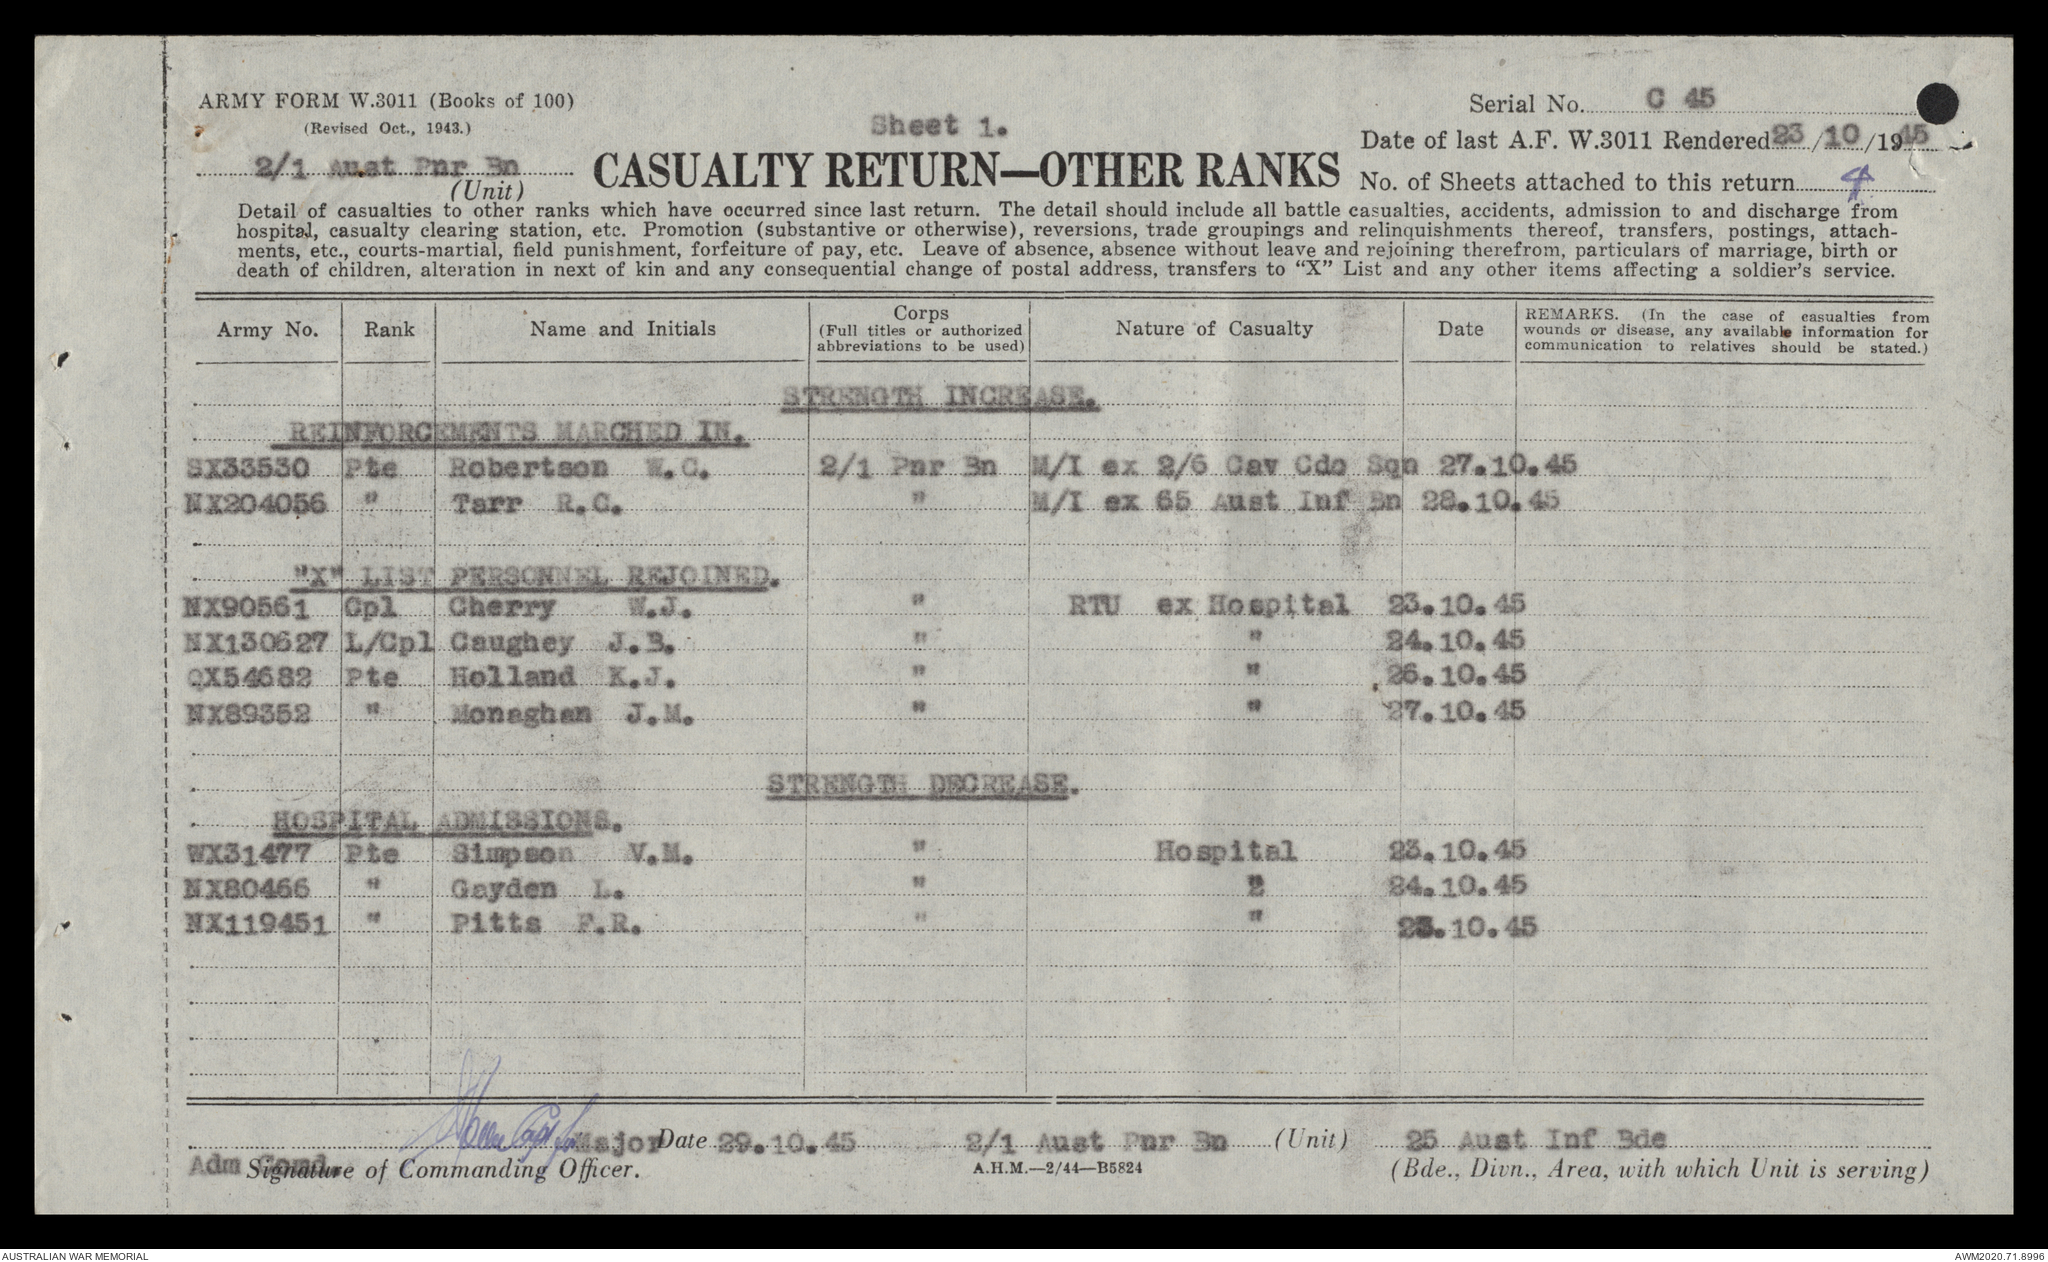 ARMY FORM W.3011 (Books of 100)
(Revised Oct., 1943.)
2/1 Aust Pnr Bn
(Unit)
Sheet 1.
CASUALTY RETURN—OTHER RANKS
Serial No. C 45
Date of last A.F. W.3011 Rendered 23/10/1945
No. of Sheets attached to this return 4
Detail of casualties to other ranks which have occurred since last return. The detail should include all battle casualties, accidents, admission to and discharge from
hospital, casualty clearing station, etc. Promotion (substantive or otherwise), reversions, trade groupings and relinquishments thereof, transfers, postings, attach-
ments, etc., courts-martial, field punishment, forfeiture of pay, etc. Leave of absence, absence without leave and rejoining therefrom, particulars of marriage, birth or
death of children, alteration in next of kin and any consequential change of postal address, transfers to "X" List and any other items affecting a soldier's service.
Army No. Rank Name and Initials Corps (Full titles or authorized abbreviations to be used) Nature of Casualty Date REMARKS. (In the case of casualties from wounds or disease, any available information for communication to relatives should be stated.)
STRENGTH INCREASE.
REINFORCEMENTS MARCHED IN.
SX33530 Pte Robertson W.C. 2/1 Pnr Bn M/I ex 2/6 Cav Cdo Sqn 27.10.45
NX204056 " Tarr R.C. " M/I ex 65 Aust Inf Bn 28.10.45
"X" LIST PERSONNEL REJOINED.
NX90561 Cpl Cherry W.J. " RTU ex Hospital 23.10.45
NX130627 L/Cpl Caughey J.B. " " 24.10.45
QX54682 Pte Holland K.J. " " 26.10.45
NX89352 " Monaghan J.M. " " 27.10.45
STRENGTH DECREASE.
HOSPITAL ADMISSIONS.
WX31477 Pte Simpson V.M. " Hospital 23.10.45
NX80466 " Gayden L. " " 24.10.45
NX119451 " Pitts F.R. " " .10.45
Major Date 29.10.45 2/1 Aust Pnr Bn (Unit) 25 Aust Inf Bde
Adm Comd.
Signature of Commanding Officer. A.H.M.—2/44—B5824 (Bde., Divn., Area, with which Unit is serving)
AUSTRALIAN WAR MEMORIAL AWM2020.71.8996